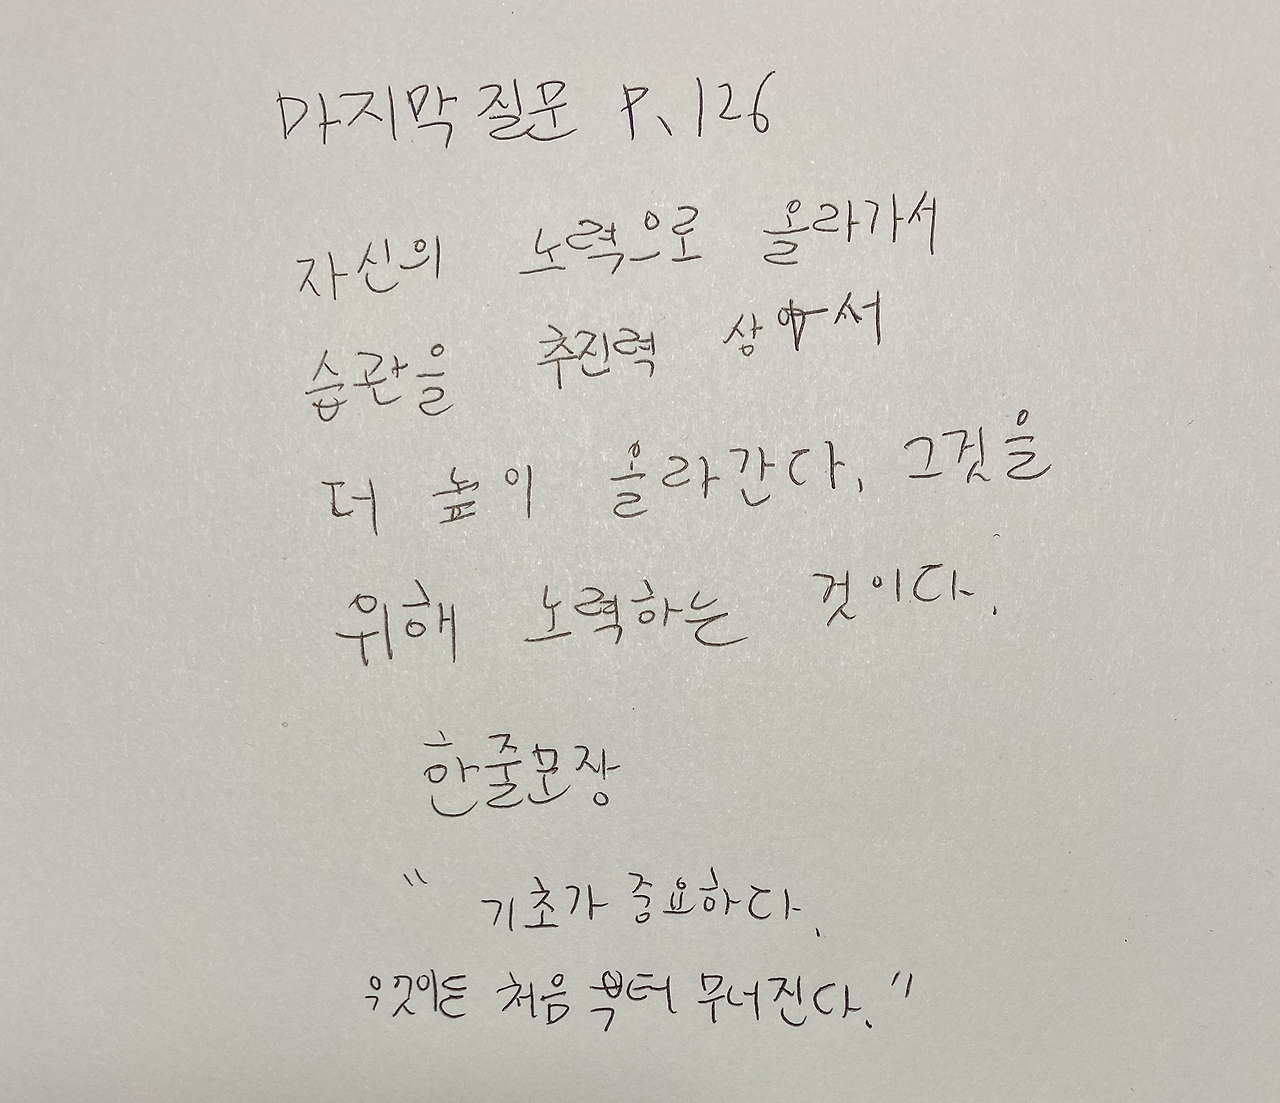 마지막 질문 P.126
자신의 노력으로 올라가서
습관을 추진력 삼아서
더 높이 올라간다. 그것을
위해 노력하는 것이다.
한줄문장
" 기초가 중요하다.
무엇이든 처음부터 무너진다."